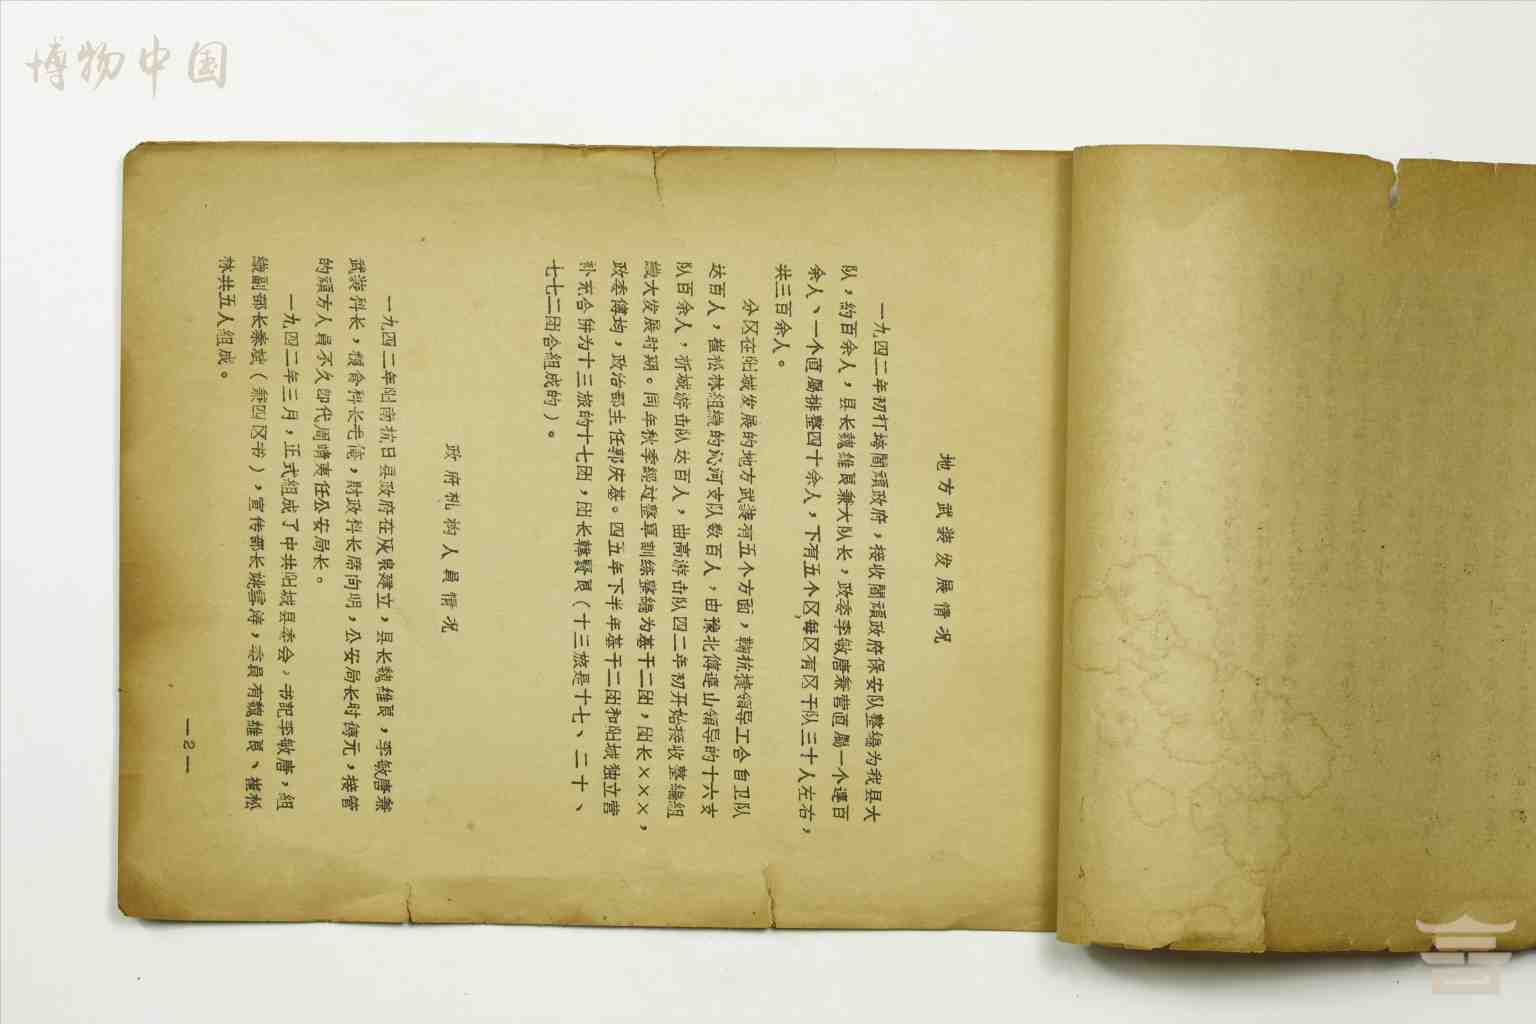 博物中国
地方武装发展情况
一九四二年初打垮閻頑政府，接收閻頑政府保安队整編为我县大
队，約百余人，县长魏维良兼大队长，政委李敏唐兼营直屬一个連百
余人、一个直屬排整四十余人，下有五个区每区有区干队三十人左右，
共三百余人。
分区在阳城发展的地方武装有五个方面，領导工会自卫队
达百人，崔松林組織的沁河支队数百人，由豫北傅連山領导的十六支
队百余人，析城游击队达百人，曲高游击队四二年初开始接收整編組
織大发展时期。同年秋季經过整軍訓練整編为基干二团，团长×××，
政委傅均，政治部主任郭庆基。四五年下半年基干二团和阳城独立营
补充合併为十三旅的十七团，团长韓賢良（十三旅是十七、二十、
七七二团合組成的）。
政府机构人員情况
一九四二年阳南抗日县政府在灰泉建立，县长魏维良，李敏唐兼
武装科长，粮食科长毛倫，財政科长席尚明，公安局长时德元，接管
的頑方人員不久即代周晴夷任公安局长。
一九四二年三月，正式組成了中共阳城县委会，书記李敏唐，組
織副部长秦斌（兼四区书），宣传部长姚雪涛，委員有魏维良、崔松
林共五人組成。
—2—